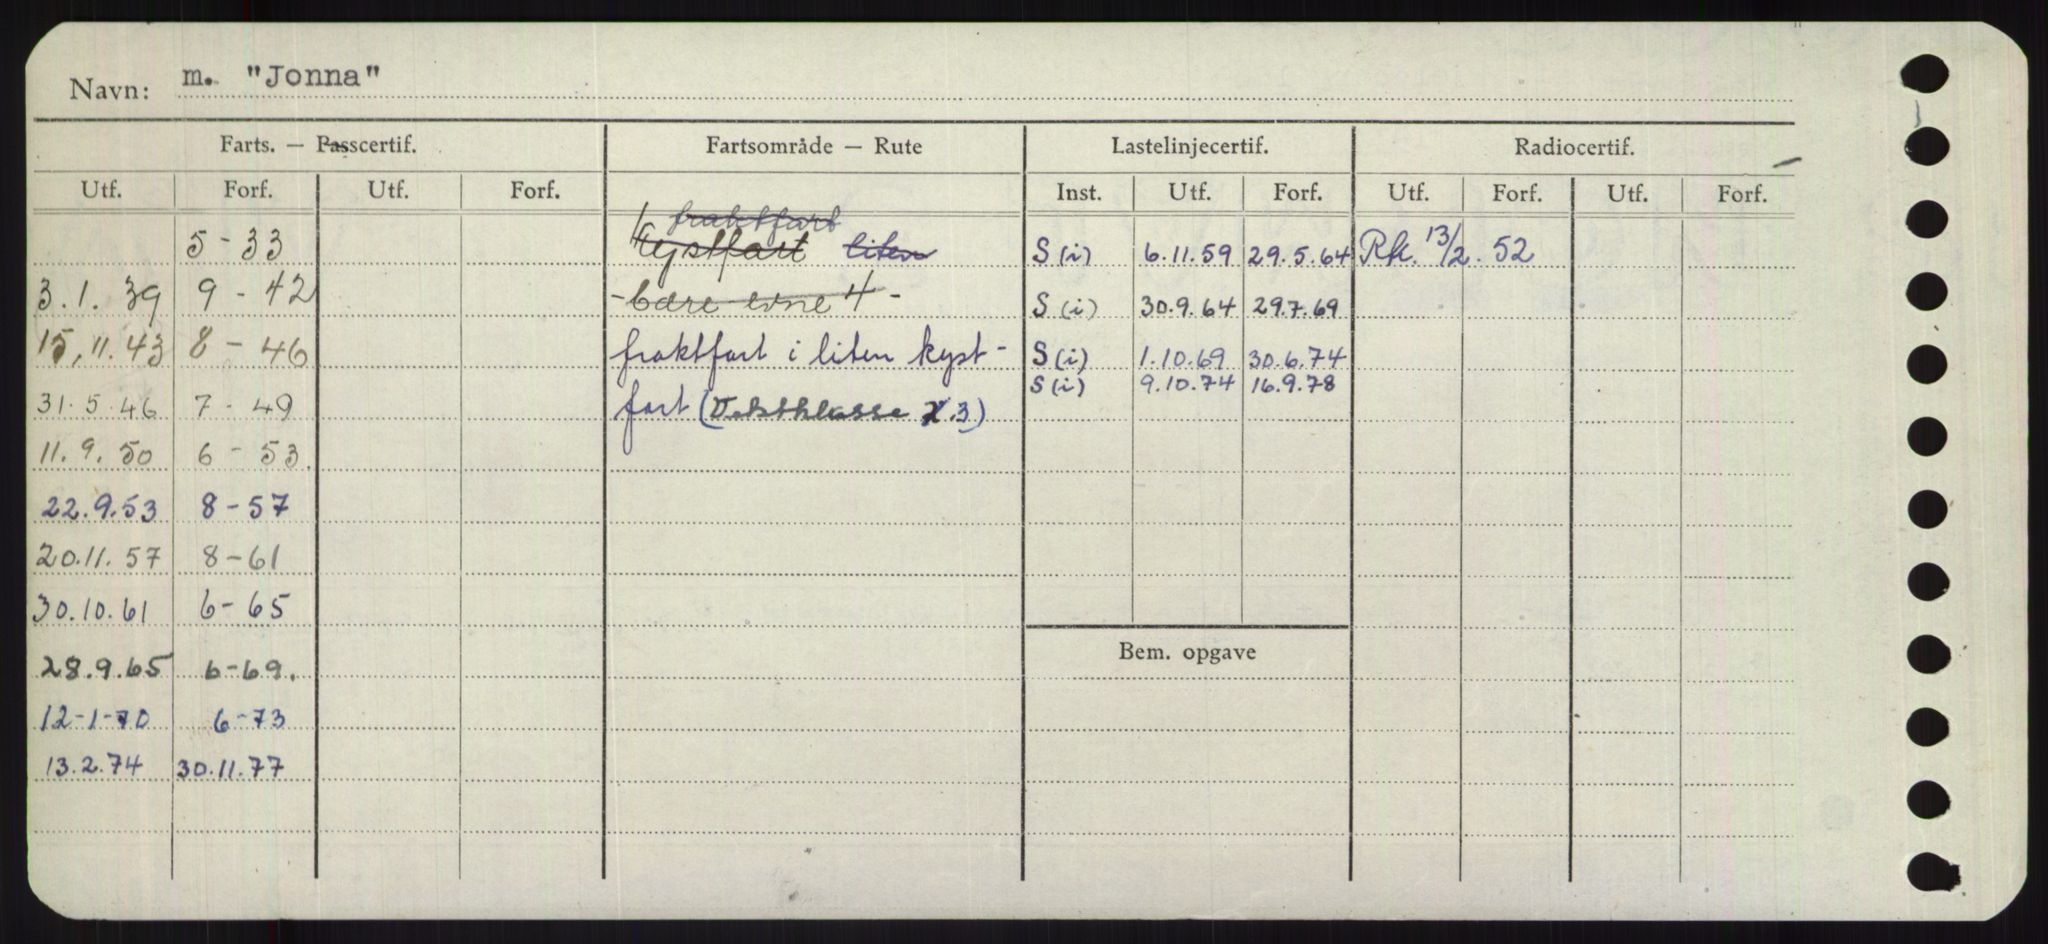 Navn: m. "Jonna"
Farts. — Passcertif. Fartsområde — Rute Lastelinjecertif. Radiocertif.
Utf. Forf. Utf. Forf. Inst. Utf. Forf. Utf. Forf. Utf. Forf.
fraktfart
5-33 Kystfart liten S (i) 6.11.59 29.5.64 Rk. 13/2. 52
3.1.39 9-42 -bære evne 4- S (i) 30.9.64 29.7.69
15.11.43 8-46 fraktfart i liten kyst- S (i) 1.10.69 30.6.74
S (i) 9.10.74 16.9.78
31.5.46 7-49 fart ( .3)
11.9.50 6-53.
22.9.53 8-57
20.11.57 8-61
30.10.61 6-65
Bem. opgave
28.9.65 6-69.
12-1-70 6-73
13.2.74 30.11.77